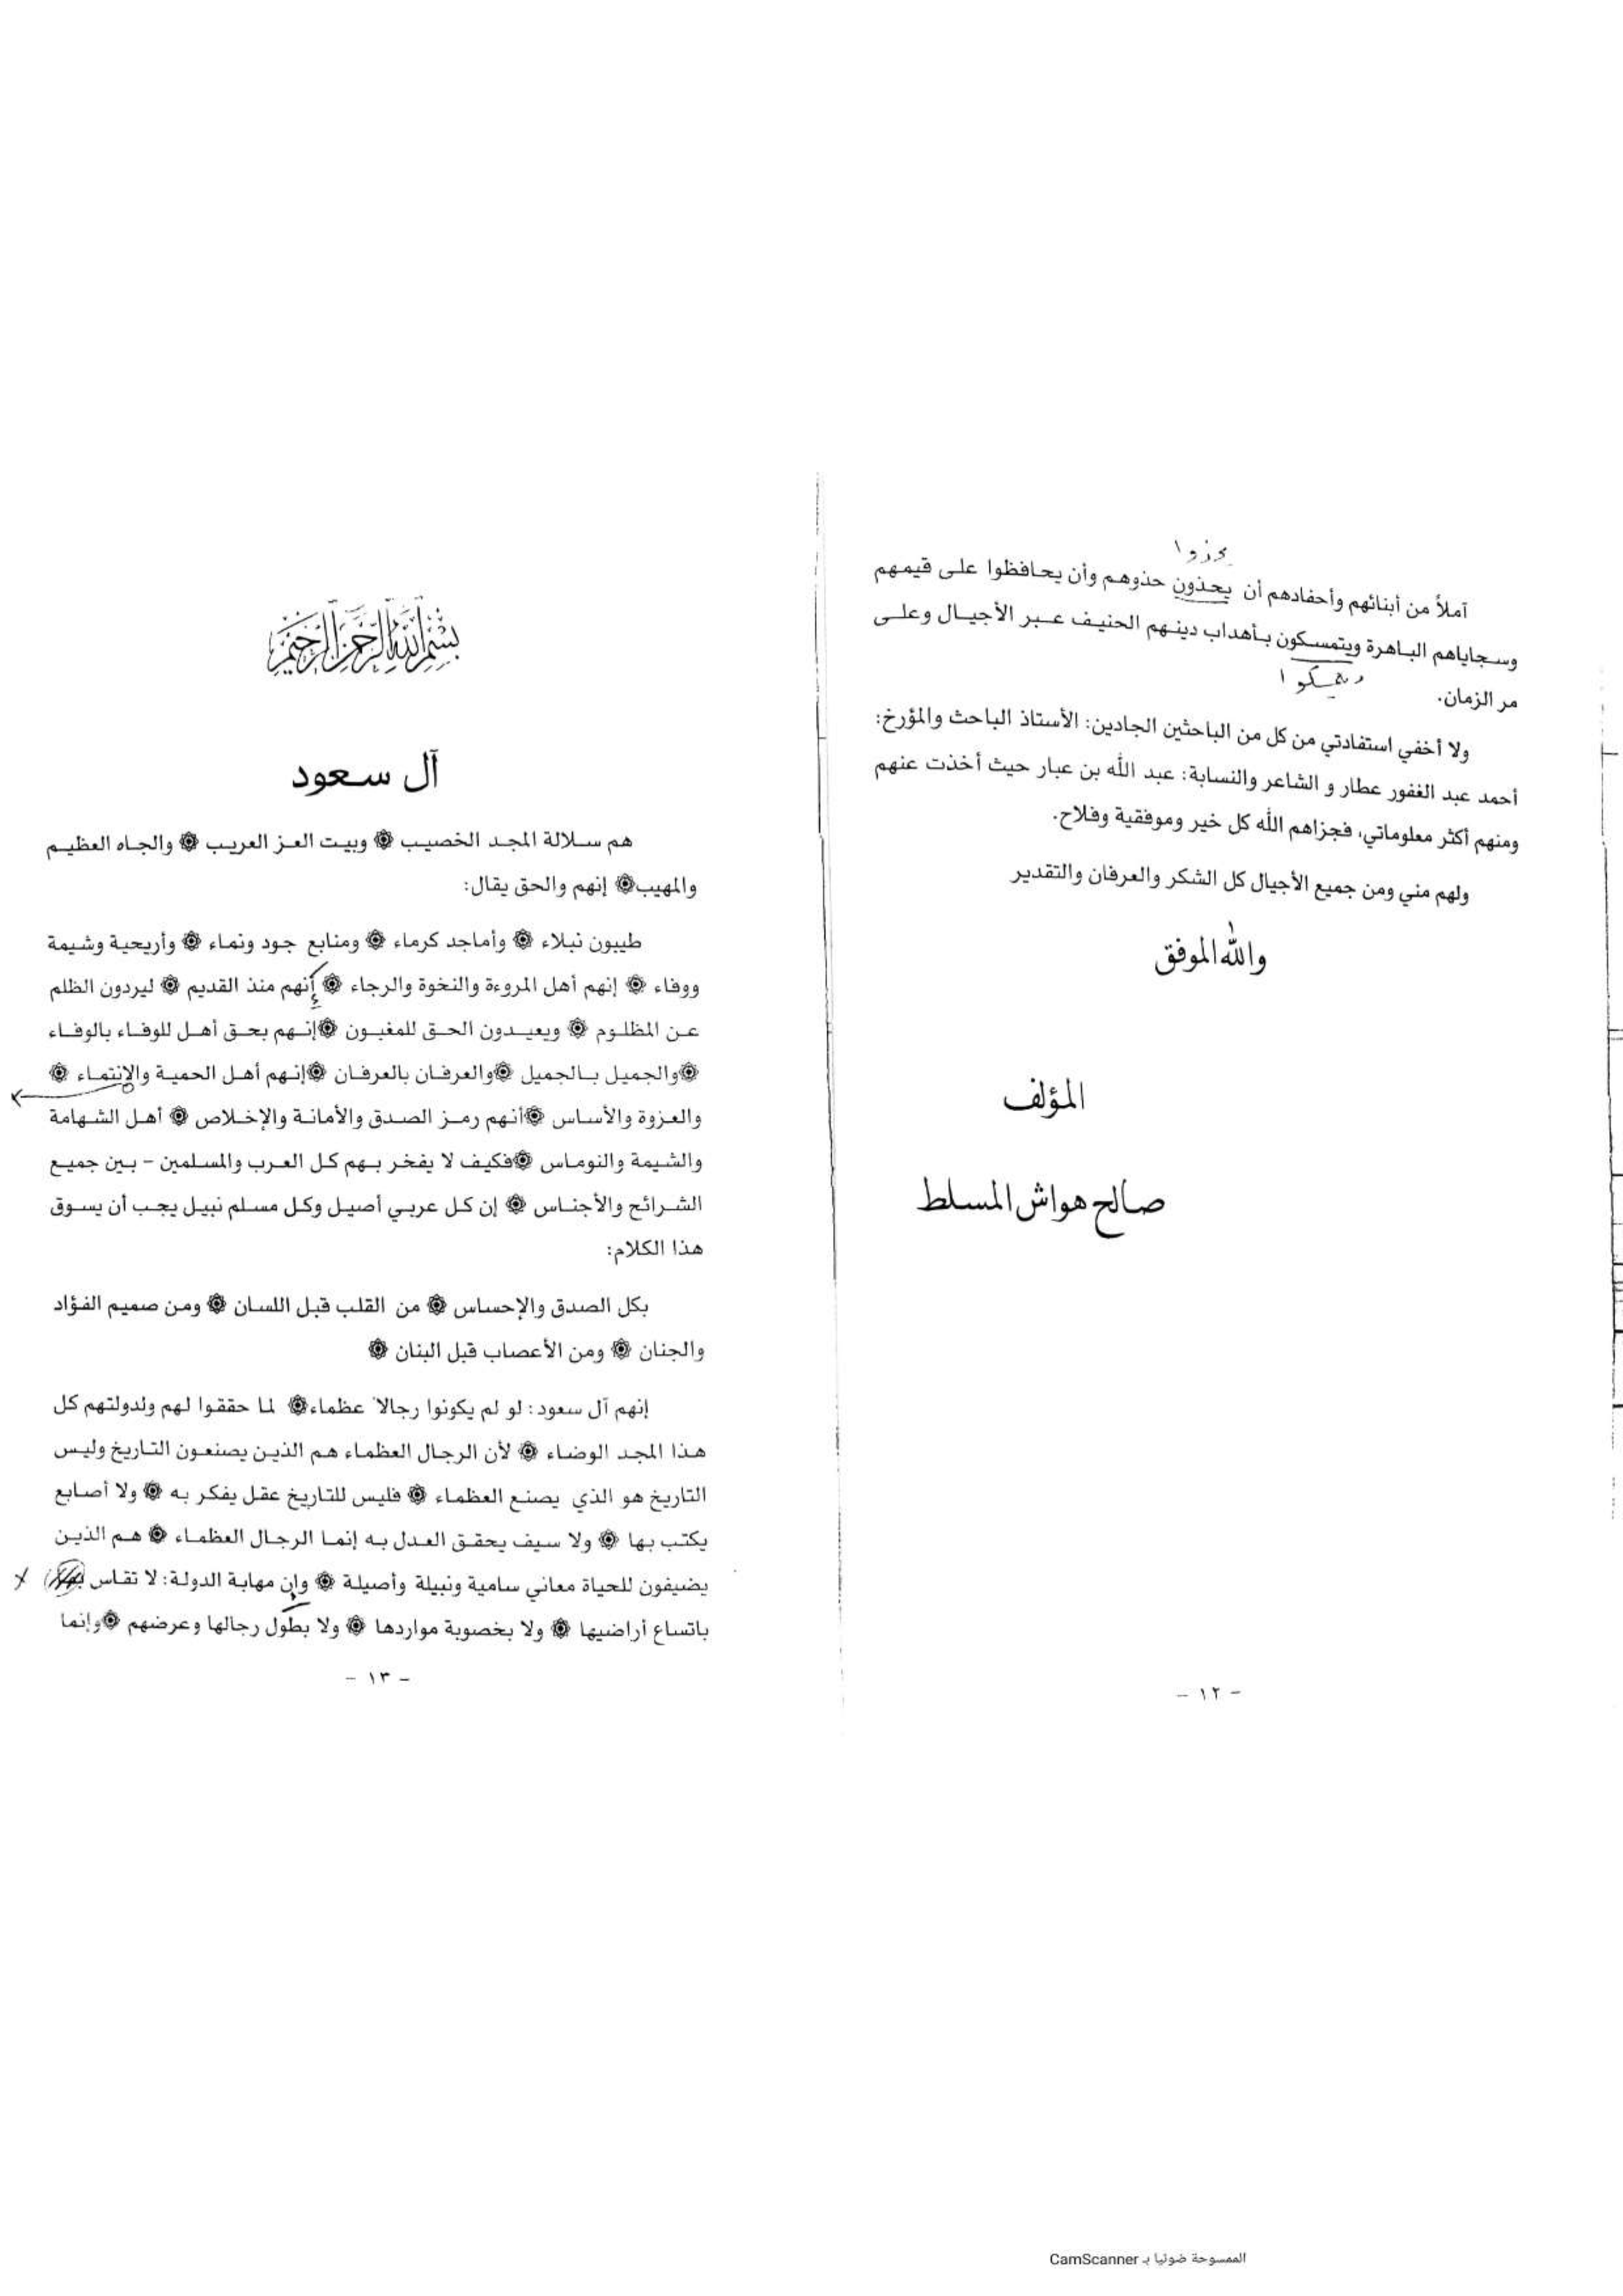 يحذوا
آملاً من أبنائهم وأحفادهم أن يحذون حذوهم وأن يحافظوا على قيمهم
وسجاياهم الباهرة ويتمسكون بأهداب دينهم الحنيف عبر الأجيال وعلى
مر الزمان.
ولا أخفي استفادتي من كل من الباحثين الجادين: الأستاذ الباحث والمؤرخ:
أحمد عبد الغفور عطار و الشاعر والنسابة: عبد الله بن عبار حيث أخذت عنهم
ومنهم أكثر معلوماتي، فجزاهم الله كل خير وموفقية وفلاح.
ولهم مني ومن جميع الأجيال كل الشكر والعرفان والتقدير
والله الموفق
المؤلف
صالح هواش المسلط
- ١٢ -
بسم الله الرحمن الرحيم
آل سعود
هم سلالة المجد الخصيب ۞ وبيت العز العريب ۞ والجاه العظيم
والمهيب۞ إنهم والحق يقال:
طيبون نبلاء ۞ وأماجد كرماء ۞ ومنابع جود ونماء ۞ وأريحية وشيمة
ووفاء ۞ إنهم أهل المروءة والنخوة والرجاء ۞ أنهم منذ القديم ۞ ليردون الظلم
عن المظلوم ۞ ويعيدون الحق للمغبون ۞إنهم بحق أهل للوفاء بالوفاء
۞والجميل بالجميل ۞والعرفان بالعرفان ۞إنهم أهل الحمية والإنتماء ۞
والعزوة والأساس ۞أنهم رمز الصدق والأمانة والإخلاص ۞ أهل الشهامة
والشيمة والنوماس ۞فكيف لا يفخر بهم كل العرب والمسلمين - بين جميع
الشرائح والأجناس ۞ إن كل عربي أصيل وكل مسلم نبيل يجب أن يسوق
هذا الكلام:
بكل الصدق والإحساس ۞ من القلب قبل اللسان ۞ ومن صميم الفؤاد
والجنان ۞ ومن الأعصاب قبل البنان ۞
إنهم آل سعود: لو لم يكونوا رجالا عظماء۞ لما حققوا لهم ولدولتهم كل
هذا المجد الوضاء ۞ لأن الرجال العظماء هم الذين يصنعون التاريخ وليس
التاريخ هو الذي يصنع العظماء ۞ فليس للتاريخ عقل يفكر به ۞ ولا أصابع
يكتب بها ۞ ولا سيف يحقق العدل به إنما الرجال العظماء ۞ هم الذين
يضيفون للحياة معاني سامية ونبيلة وأصيلة ۞ وإن مهابة الدولة: لا تقاس
باتساع أراضيها ۞ ولا بخصوبة مواردها ۞ ولا بطول رجالها وعرضهم ۞وإنما
- ١٣ -
الممسوحة ضوئيا بـ CamScanner